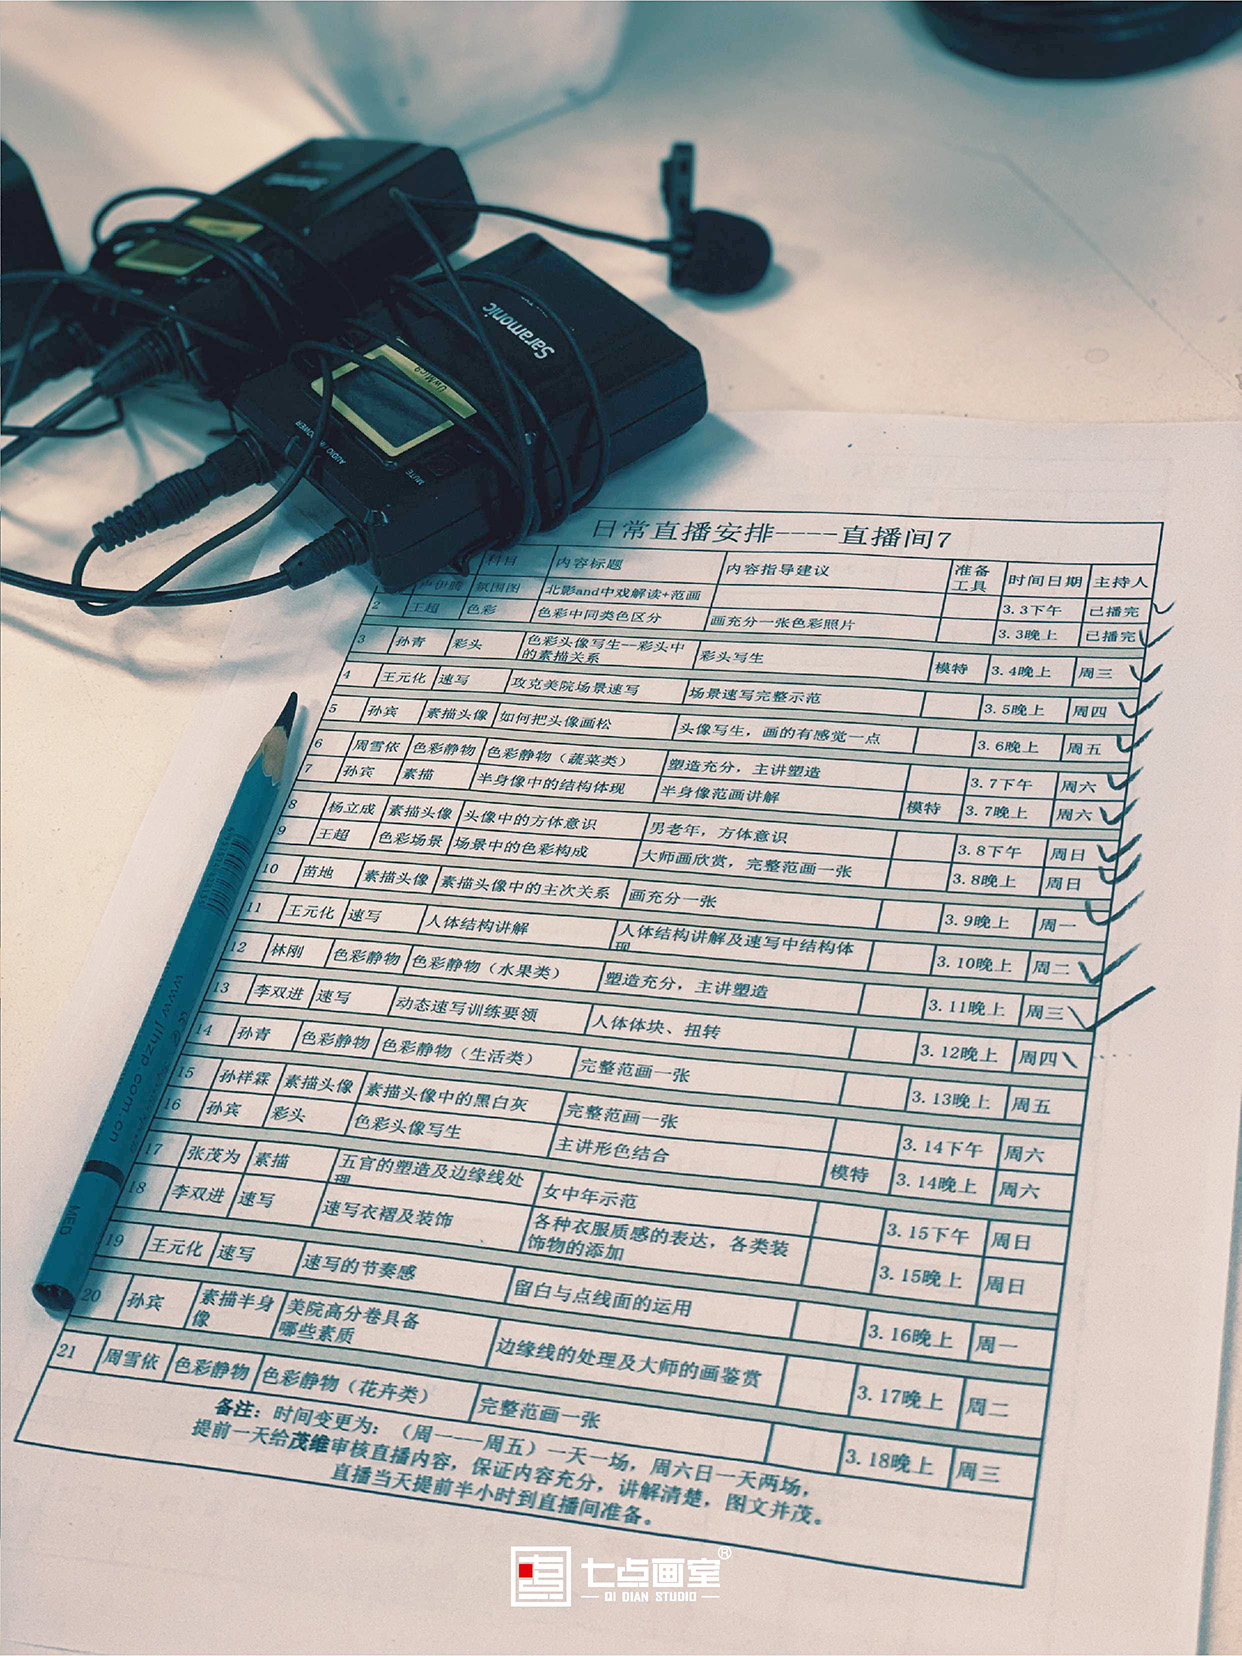 Saramonic
UwMic9
AUDIO
POWER
MUTE
日常直播安排----直播间7
科目 内容标题 内容指导建议 准备工具 时间日期 主持人
氛围图 北影and中戏解读+范画 3.3下午 已播完
2 王超 色彩 色彩中同类色区分 画充分一张色彩照片 3.3晚上 已播完
3 孙青 彩头 色彩头像写生--彩头中的素描关系 彩头写生 模特 3.4晚上 周三
4 王元化 速写 攻克美院场景速写 场景速写完整示范 3.5晚上 周四
5 孙宾 素描头像 如何把头像画松 头像写生，画的有感觉一点 3.6晚上 周五
6 周雪依 色彩静物 色彩静物（蔬菜类） 塑造充分，主讲塑造 3.7下午 周六
7 孙宾 素描 半身像中的结构体现 半身像范画讲解 模特 3.7晚上 周六
8 杨立成 素描头像 头像中的方体意识 男老年，方体意识 3.8下午 周日
9 王超 色彩场景 场景中的色彩构成 大师画欣赏，完整范画一张 3.8晚上 周日
10 苗地 素描头像 素描头像中的主次关系 画充分一张 3.9晚上 周一
11 王元化 速写 人体结构讲解 人体结构讲解及速写中结构体现 3.10晚上 周二
12 林刚 色彩静物 色彩静物（水果类） 塑造充分，主讲塑造 3.11晚上 周三
13 李双进 速写 动态速写训练要领 人体体块、扭转 3.12晚上 周四
14 孙青 色彩静物 色彩静物（生活类） 完整范画一张 3.13晚上 周五
15 孙祥霖 素描头像 素描头像中的黑白灰 完整范画一张 3.14下午 周六
16 孙宾 彩头 色彩头像写生 主讲形色结合 模特 3.14晚上 周六
17 张茂为 素描 五官的塑造及边缘线处理 女中年示范 3.15下午 周日
18 李双进 速写 速写衣褶及装饰 各种衣服质感的表达，各类装饰物的添加 3.15晚上 周日
19 王元化 速写 速写的节奏感 留白与点线面的运用 3.16晚上 周一
20 孙宾 素描半身像 美院高分卷具备哪些素质 边缘线的处理及大师的画鉴赏 3.17晚上 周二
21 周雪依 色彩静物 色彩静物（花卉类） 完整范画一张 3.18晚上 周三
备注：时间变更为：（周一----周五）一天一场，周六日一天两场，
提前一天给茂维审核直播内容，保证内容充分，讲解清楚，图文并茂。
直播当天提前半小时到直播间准备。
MED
七点画室®
QI DIAN STUDIO